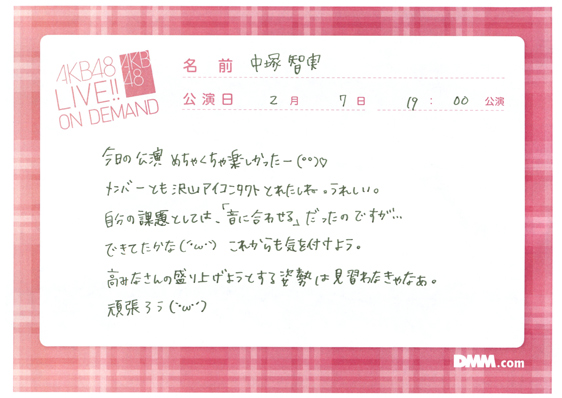 AKB48
LIVE!!
ON DEMAND
AKB
48
名前 中塚智実
公演日 2月 7日 19:00公演
今日の公演 めちゃくちゃ楽しかったー(°°)♡
メンバーとも沢山アイコンタクトとれたしね。うれしい。
自分の課題としては、「音に合わせる」だったのですが…
できてたかな(´・ω・`) これからも気を付けよう。
高みなさんの盛り上げようとする姿勢は見習わなきゃなぁ。
頑張ろう(´・ω・`)
DMM.com